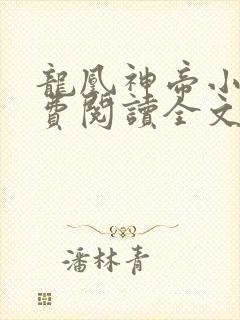 龍凰神帝小
費閱讀全文
潘林青